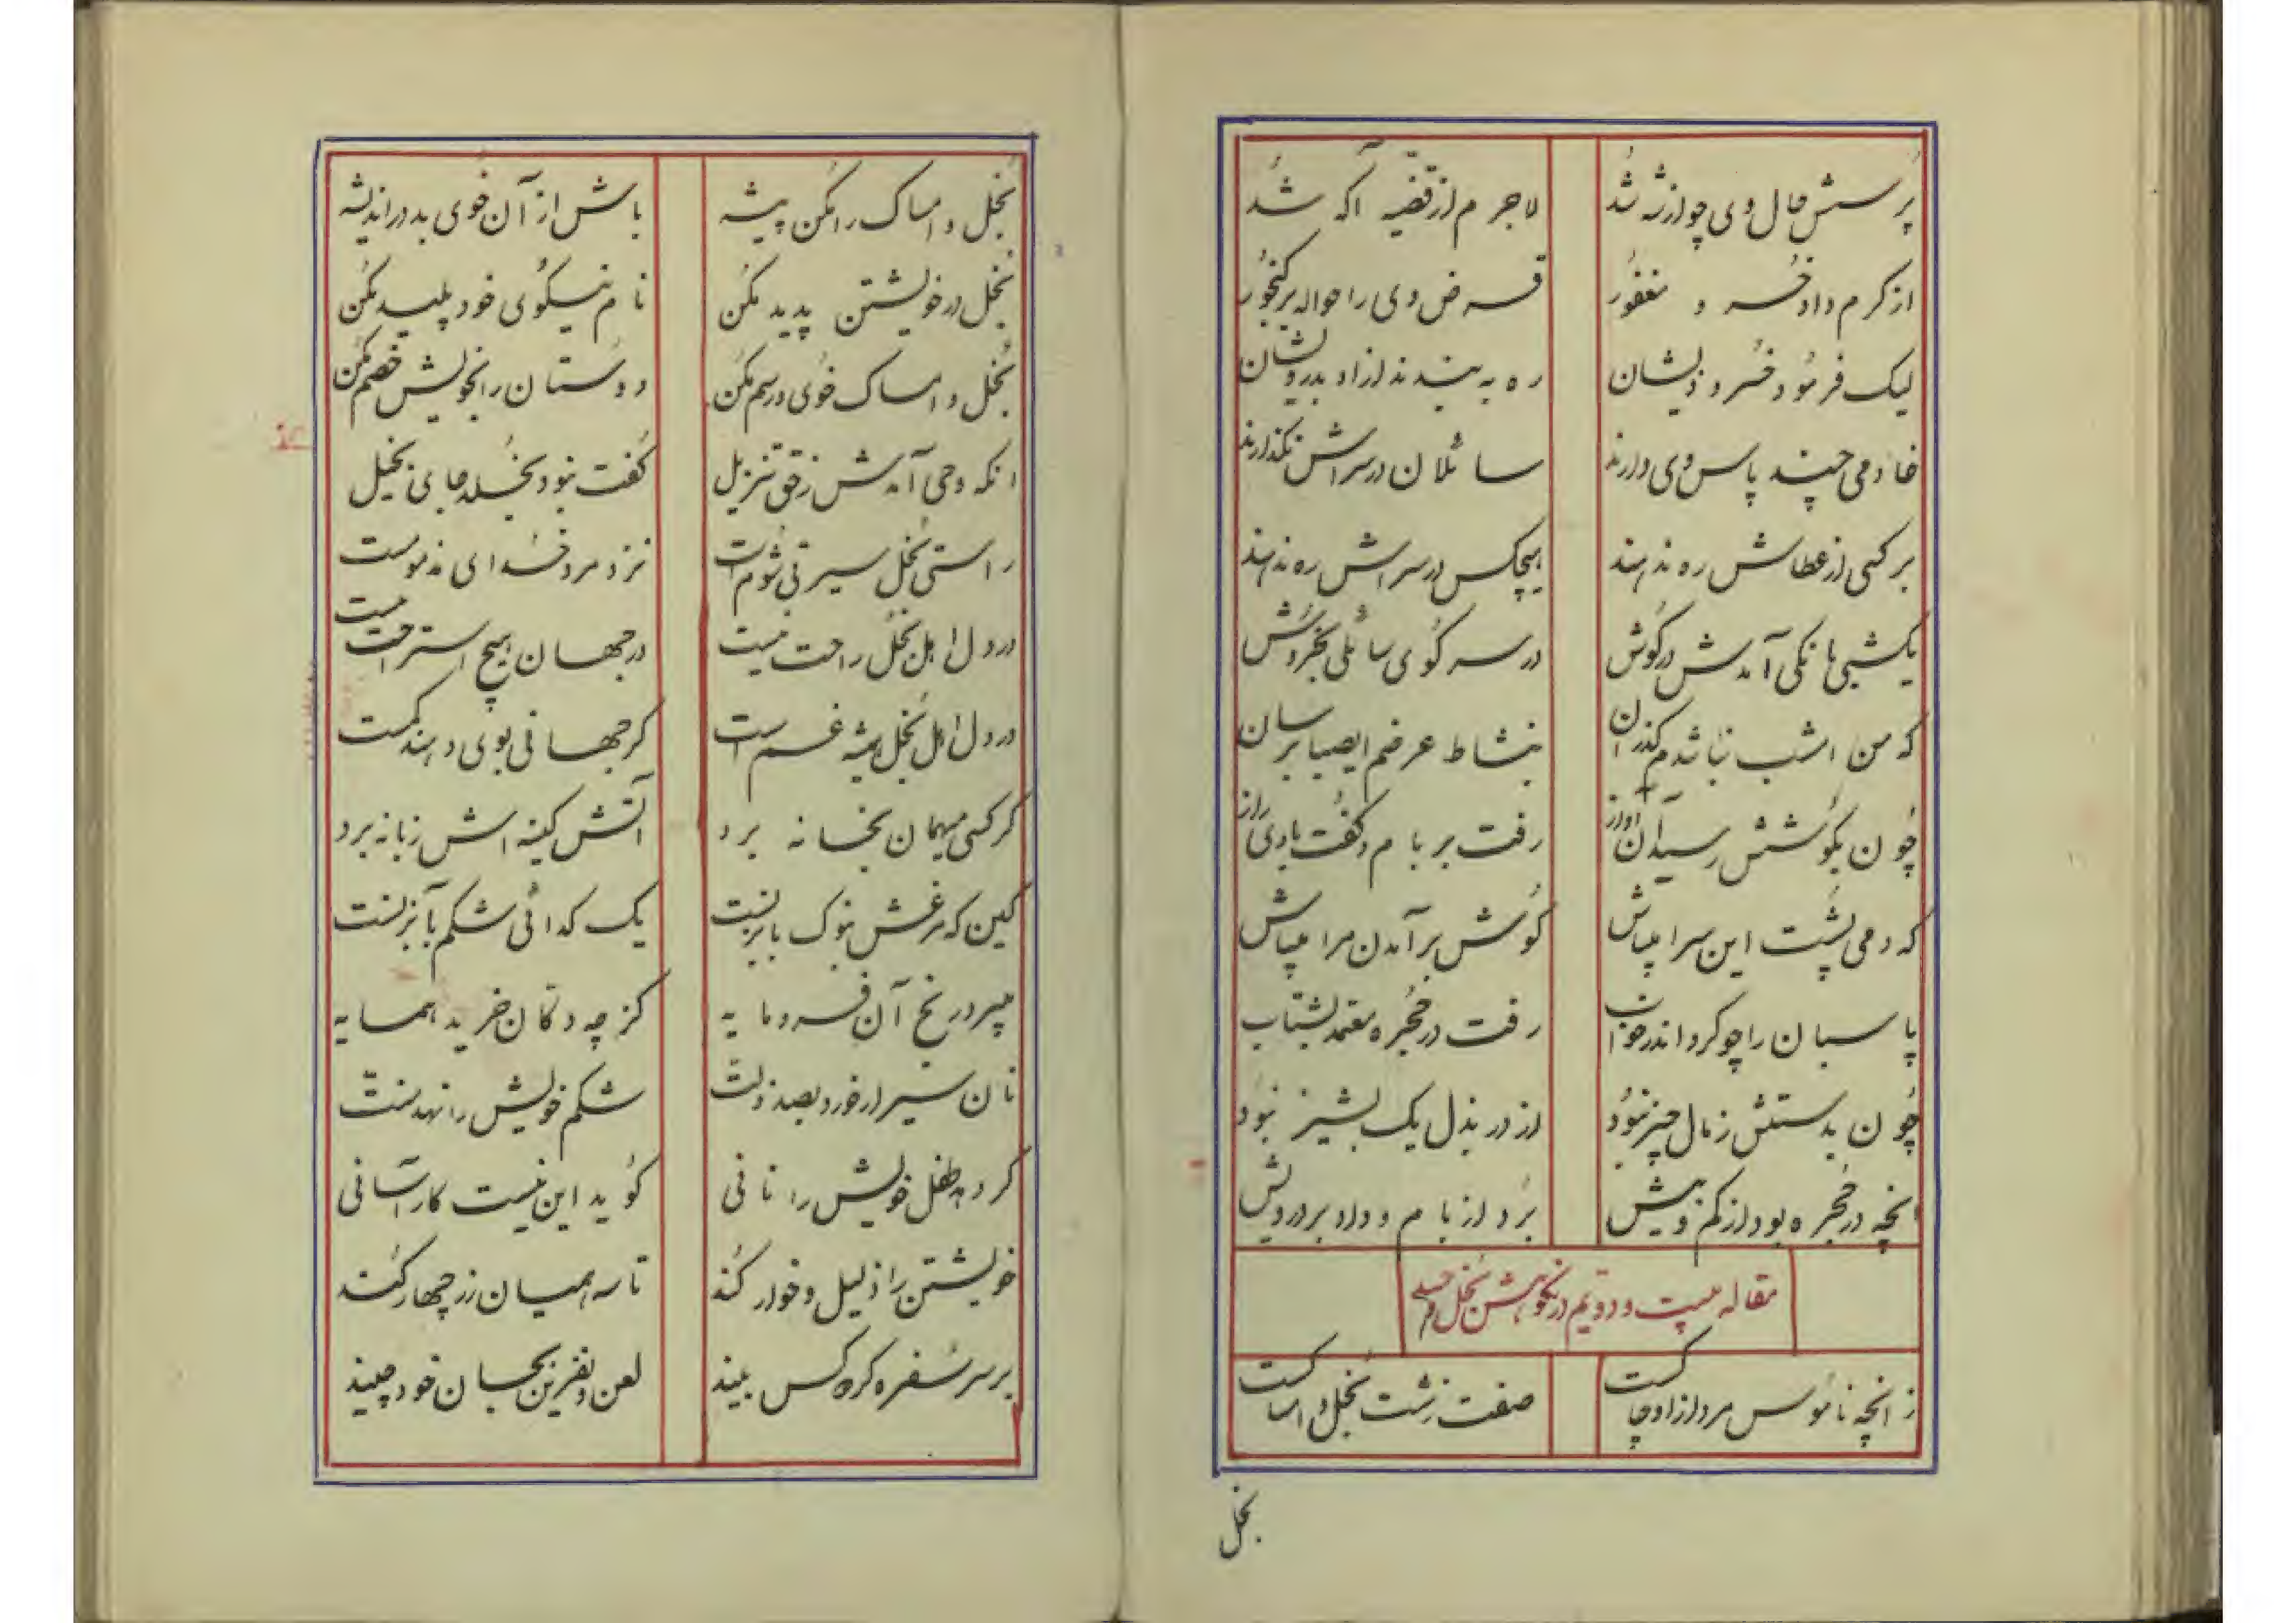 پرسش حال وی چو از شه شد
لاجرم از قضیه آگه شد
از کرم داد خسرو مغفور
قرض وی را حواله بر گنجور
لیک فرمود خسرو ذیشان
ره به بندند از او بدرویشان
خادمی چند پاس وی دارند
سائلان در سراش نگذارند
بر کسی از عطاش ره ندهند
هیچکس در سراش ره ندهند
یکشبی بانکی آمدش در گوش
در سر کوی سائلی بخروش
که من امشب نباشدم گذران
بنشاط عرضم ای صبا برسان
چون بگوشش رسید آن آواز
رفت بر بام و گفت با وی راز
که دمی پشت این سرا میباش
گوش بر آمدن مرا میباش
پاسبان را چو کرد اندر خواب
رفت در حجره معتمد بشتاب
چون بدستش ز مال چیز نبود
از در بذل یک پشیز نبود
انچه در حجره بود از کم و بیش
برد از بام و داد بر درویش
مقاله بیست و دویم در نکوهش بخل
ز انچه ناموس مرد از او کاست
صفت زشت بخل و امساکست
بخل
بخل و امساک را مکن پیشه
باش از آن خوی بد در اندیشه
بخل در خویشتن پدید مکن
نام نیکوی خود پلید مکن
بخل و امساک خوی و رسم مکن
دوستان را بخویش خصم مکن
انکه وحی آمدش ز حق تنزیل
گفت نبود بخلد جای بخیل
راستی بخل سیرتی شوم است
نزد مرد خدای مذمومست
در دل اهل بخل راحت نیست
در جهان هیچ استراحت نیست
در دل اهل بخل همیشه غم است
گر جهانی بوی دهند کمست
گر کسی میهمان بخانه برد
آتش کینه اش زبانه برد
کین که مرغش نوک بابزنست
یک گدائی شکم بآبزنست
میرد در رنج آن فرومایه
کز چه دکان خرید همسایه
نان سیر ار خورد بصد ذلت
شکم خویش را نهد منت
گر دهد طفل خویش را نانی
گوید این نیست کار آسانی
خویشتن را ذلیل و خوار کند
تا سه همیان زر چهار کند
بر سر سفره گر دو کس بیند
لعن و نفرین بجان خود چیند